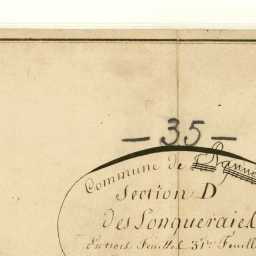 — 35 —
Commune de
Section D
Des Longueraie
En trois feuilles 3me Feuille